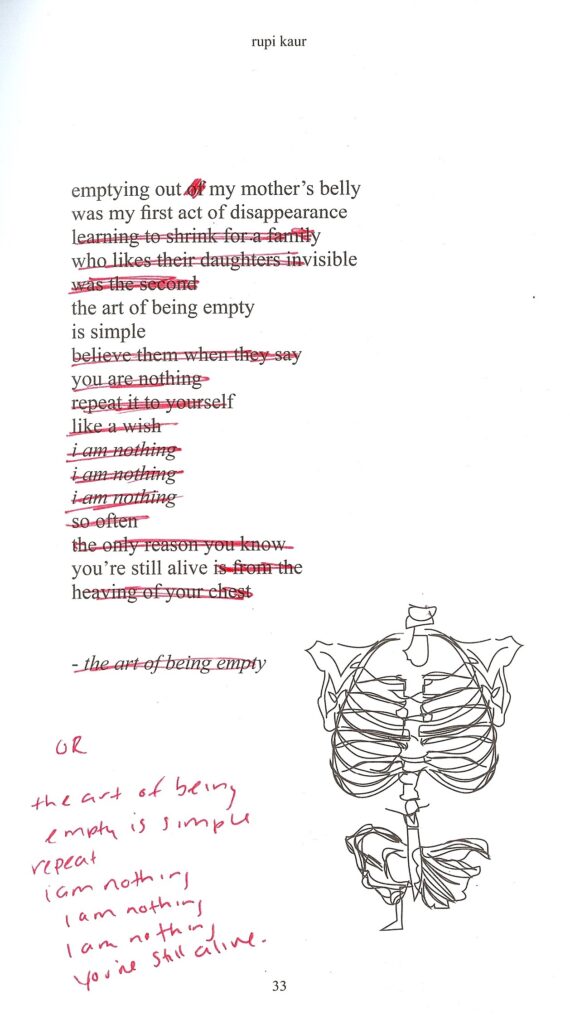 rupi kaur
emptying out of my mother's belly
was my first act of disappearance
learning to shrink for a family
who likes their daughters invisible
was the second
the art of being empty
is simple
believe them when they say
you are nothing
repeat it to yourself
like a wish
i am nothing
i am nothing
i am nothing
so often
the only reason you know
you're still alive is from the
heaving of your chest
- the art of being empty
OR
the art of being
empty is simple
repeat
i am nothing
I am nothing
I am nothing
you're still alive.
33